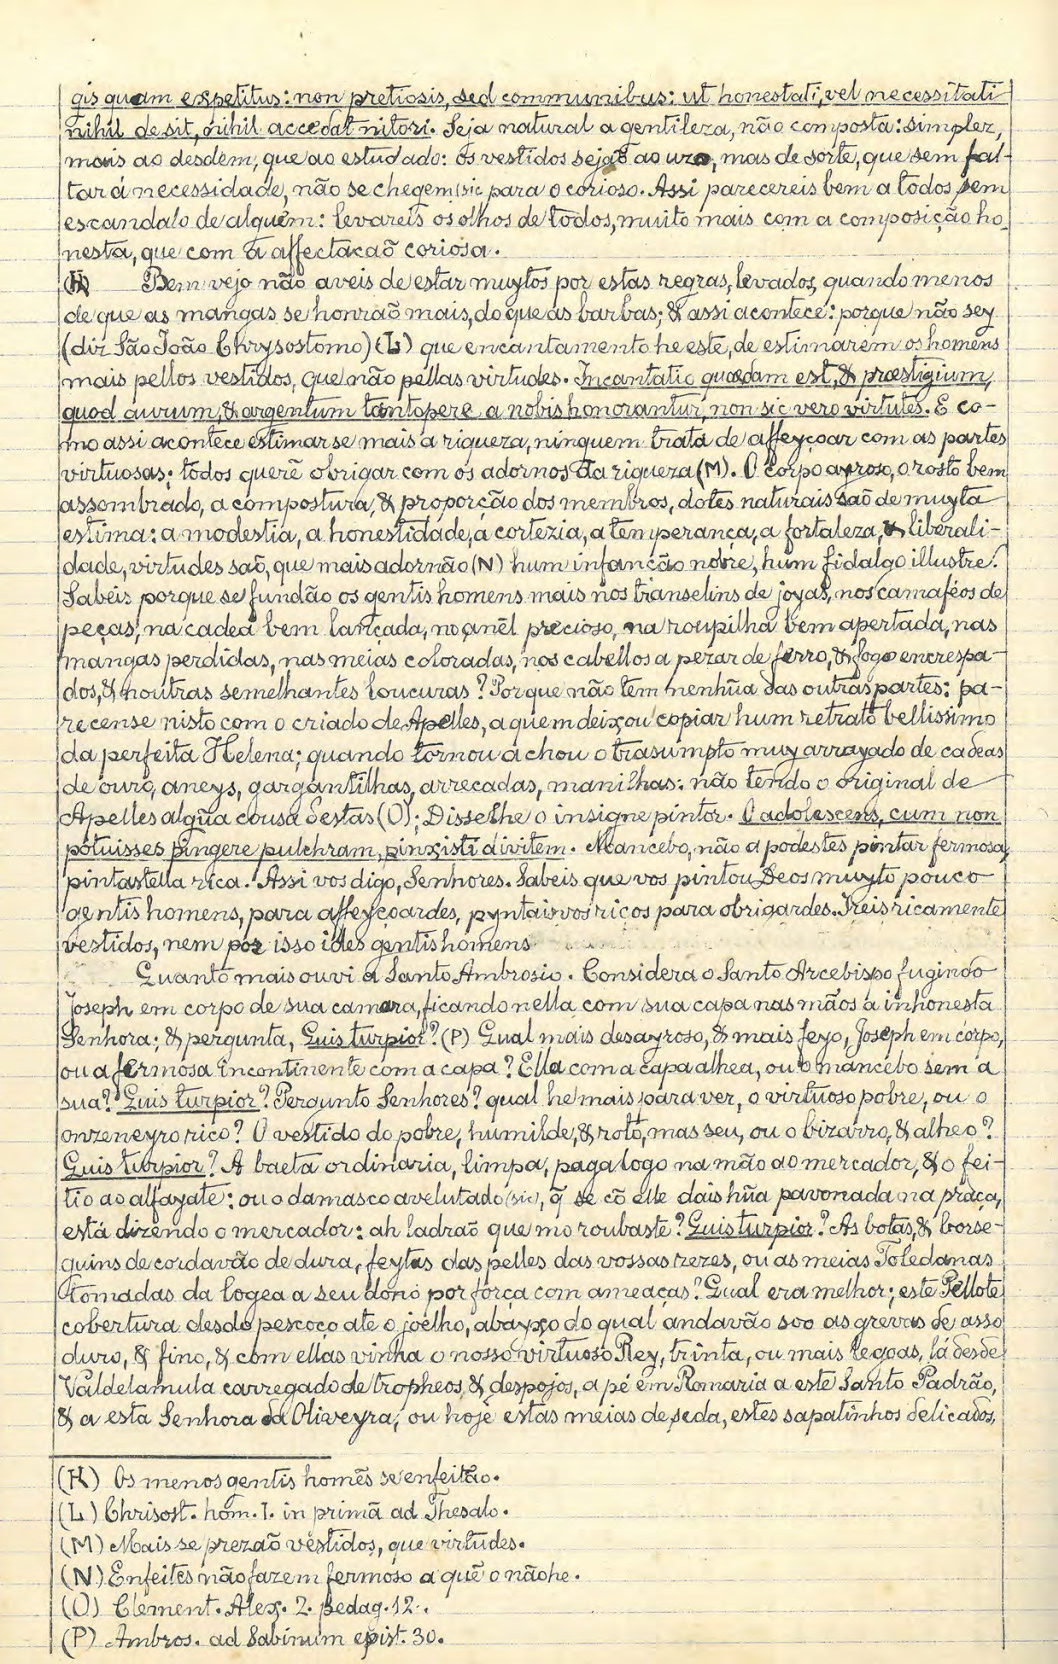 gis quam expetitus: non pretiosis, sed communibus: ut honestati, vel necessitati
nihil desit, nihil accedat nitori. Seja natural a gentileza, não composta: simplez,
mais ao desdem, que ao estudado: os vestidos sejaõ ao uzo, mas de sorte, que sem fal-
tar á necessidade, não se chegem (sic para o corioso. Assi parecereis bem a todos sem
escandalo de alguem: levareis os olhos de todos, muito mais com a composição ho-
nesta, que com a affectacaõ coriosa.
(H) Bem vejo não aveis de estar muytos por estas regras, levados, quando menos
de que as mangas se honrão mais, do que as barbas; & assi acontece: porque não sey
(diz São João Chrysostomo) (L) que encantamento he este, de estimarem os homens
mais pellos vestidos, que não pellas virtudes. Incantatio quædam est, & præstigium,
quod aurum, & argentum tantopere a nobis honorantur, non sic vero virtutes. E co-
mo assi acontece estimarse mais a riqueza, ninguem trata de affeyçoar com as partes
virtuosas; todos querẽ obrigar com os adornos da riqueza (M). O corpo ayroso, o rosto bem
assombrado, a compostura, & proporção dos membros, dotes naturais saõ de muyta
estima: a modestia, a honestidade, a cortezia, a temperança, a fortaleza, & liberali-
dade, virtudes saõ, que mais adornão (N) hum infanção nobre, hum fidalgo illustre.
Sabeis porque se fundão os gentis homens mais nos transelins de joyas, nos camaféos de
peças, na cadea bem lançada, no anel precioso, na roupilha bem apertada, nas
mangas perdidas, nas meias coloradas, nos cabellos a pezar de ferro, & fogo encrespa-
dos, & noutras semelhantes loucuras? Porque não tem nenhũa das outras partes: pa-
recense nisto com o criado de Apelles, a quem deixou copiar hum retrato bellissimo
da perfeita Helena; quando tornou achou o trasumpto muy arrayado de cadeas
de ouro, aneys, gargantilhas, arrecadas, manilhas: não tendo o original de
Apelles algũa cousa destas (O); Disselhe o insigne pintor. O adolescens, cum non
potuisses pingere pulchram, pinxisti divitem. Mancebo, não a podestes pintar fermosa,
pintastella rica. Assi vos digo, Senhores. Sabeis que vos pintou Deos muyto pouco
gentis homens, para affeyçoardes, pyntaisvos ricos para obrigardes. Ireis ricamente
vestidos, nem por isso ides gentis homens
Quanto mais ouvi a Santo Ambrosio. Considera o Santo Arcebispo fugindo
Joseph em corpo de sua camara, ficando nella com sua capa nas mãos a inhonesta
Senhora; & pergunta, Quis turpior? (P) Qual mais desayroso, & mais feyo, Joseph em corpo,
ou a fermosa incontinente com a capa? Ella com a capa alhea, ou o mancebo sem a
sua? Quis turpior? Pergunto Senhores? qual he mais para ver, o virtuoso pobre, ou o
onzeneyro rico? O vestido do pobre, humilde, & roto, mas seu, ou o bizarro, & alheo?
Quis turpior? A baeta ordinaria, limpa, paga logo na mão ao mercador, & o fei-
tio ao alfayate: ou o damasco avelutado (sic), q̃ se cõ elle dais hũa pavonada na praça,
está dizendo o mercador: ah ladraõ que mo roubaste? Quis turpior? As botas, & borse-
guins de cordavão de dura, feytas das pelles das vossas rezes, ou as meias Toledanas
tomadas da logea a seu dono por força com ameaças? Qual era melhor; este Pellote
cobertura desdo pescoço ate o joelho, abayxo do qual andavão soo as grevas de asso
duro, & fino, & com ellas vinha o nosso virtuoso Rey, trinta, ou mais legoas, lá desde
Valdelamula carregado de tropheos, & despojos, a pé em Romaria a este Santo Padrão,
& a esta Senhora da Oliveyra, ou hoje estas meias de seda, estes sapatinhos delicados,
(H) Os menos gentis homẽs se enfeitão.
(L) Chrisost. hom. I. in primã ad Thesalo.
(M) Mais se prezaõ vestidos, que virtudes.
(N) Enfeites não fazem fermoso a quẽ o não he.
(O) Clement. Alex. 2. pedag. 12.
(P) Ambros. ad Sabinum epist. 30.